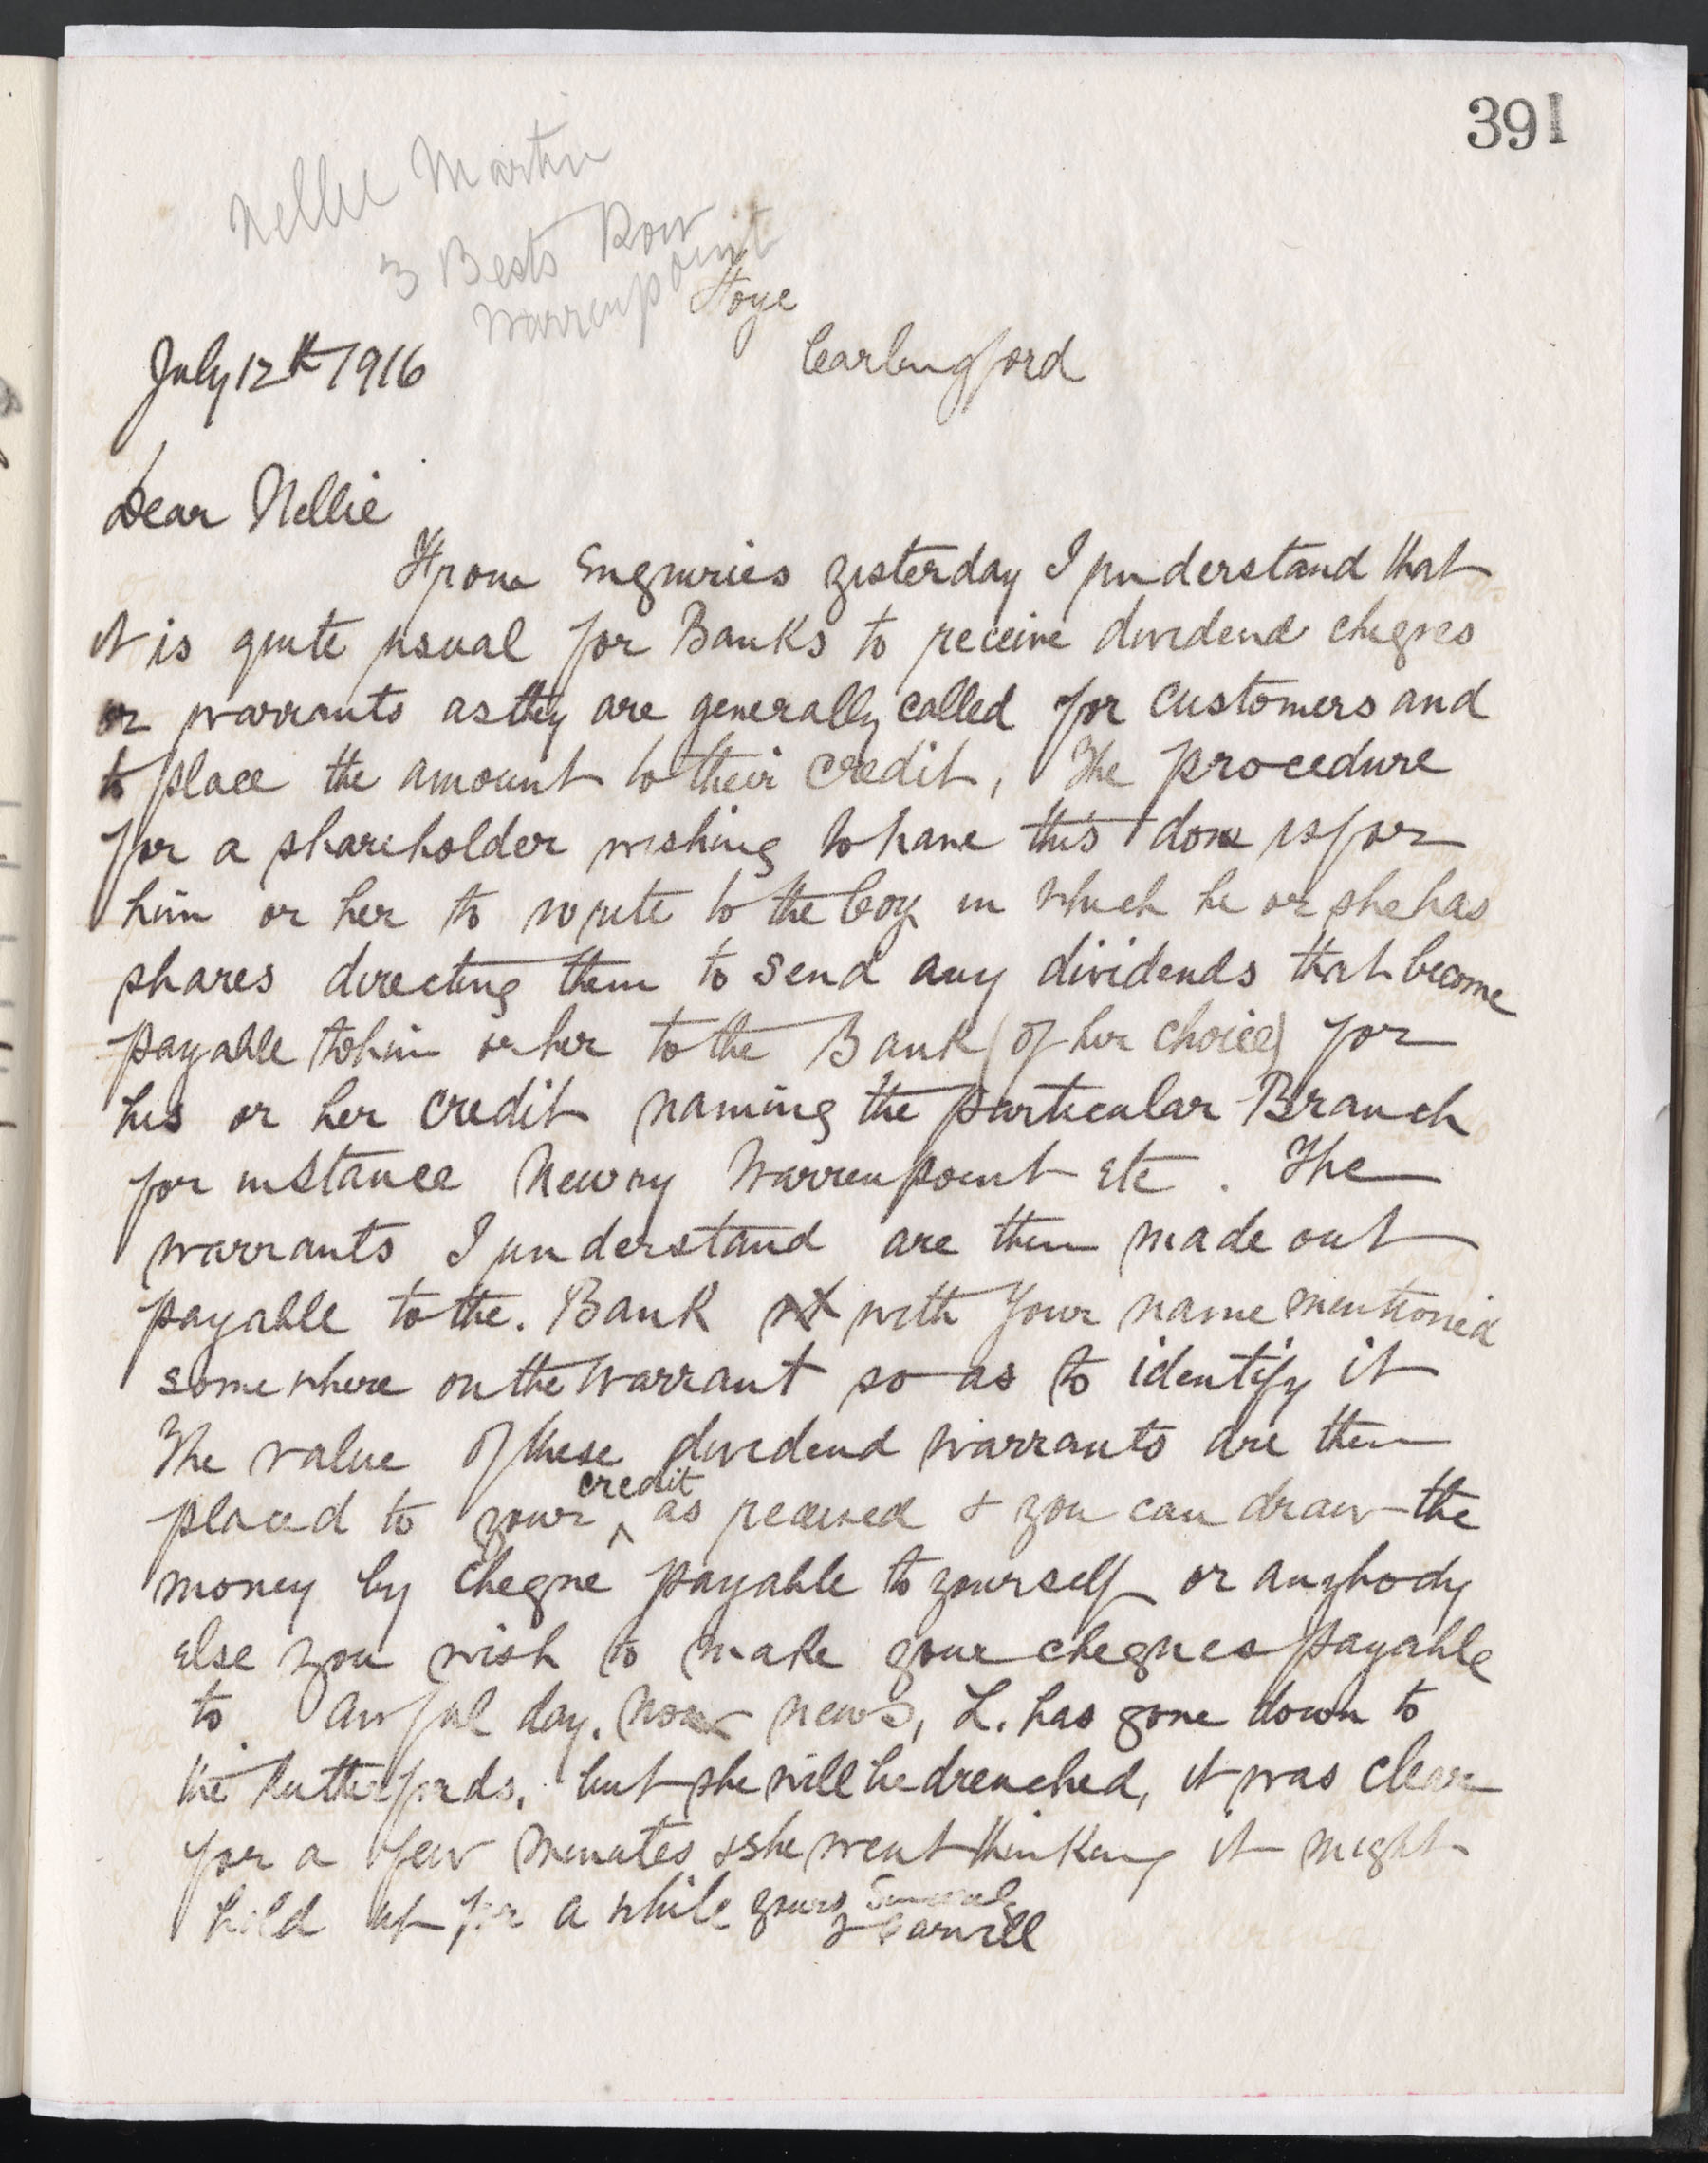 391
Nellie Martin
3 Bests Row
Warrenpoint
July 12th 1916
Carlingford
Dear Nellie
From Enquiries yesterday I understand that
it is quite usual for Banks to receive dividend cheques
or warrants as they are generally called for customers and
to place the amount to their credit, The procedure
for a shareholder wishing to have this done is for
him or her to write to the Coy in which he or she has
shares directing them to send any dividends that become
payable to him or her to the Bank (of her choice) for
his or her credit naming the particular Branch
for instance Newry Warrenpoint etc. The
warrants I understand are then made out
payable to the. Bank with your name mentioned
somewhere on the warrant so as to identify it
The value of these dividend warrants are then
placed to your credit as received & you can draw the
money by cheque payable to yourself or anybody
else you wish to make your cheques payable
to Awful day. news, L. has gone down to
the Rutherfords, but she will be drenched, it was clear
for a few minutes & she went thinking it might
hold up for a while yours Sincerely